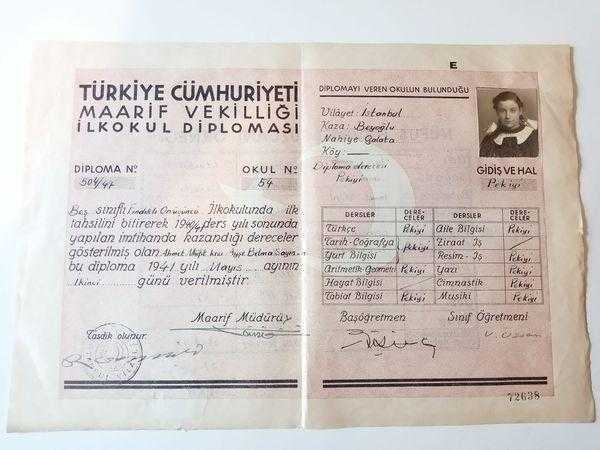 E
TÜRKİYE CÜMHURİYETİ
MAARİF VEKİLLİĞİ
İLKOKUL DİPLOMASI
DİPLOMA No
OKUL No
504/47
54
Beş sınıflı Fındıklı Onuçuncu İlkokulunda ilk
tahsilini bitirerek 1940/4 ders yılı sonunda
yapılan imtihanda kazandığı dereceler
gösterilmiş olan Ahmet kızı Belma
bu diploma 1941 yılı Mayıs ayının
ikinci günü verilmiştir.
Maarif Müdürü
Tasdik olunur.
DİPLOMAYI VEREN OKULUN BULUNDUĞU
Vilâyet: İstanbul
Kaza: Beyoğlu
Nahiye: Galata
Köy: —
Diploma derecesi
Pekiyi
GİDİŞ VE HAL
Pekiyi
DERSLER DERECELER DERSLER DERECELER
Türkçe Pekiyi Aile Bilgisi Pekiyi
Tarih-Coğrafya Pekiyi Ziraat-İş
Yurt Bilgisi Resim-İş Pekiyi
Aritmetik-Geometri Pekiyi Yazı Pekiyi
Hayat Bilgisi Cimnastik Pekiyi
Tabiat Bilgisi Pekiyi Musiki Pekiyi
Başöğretmen Sınıf Öğretmeni
72638